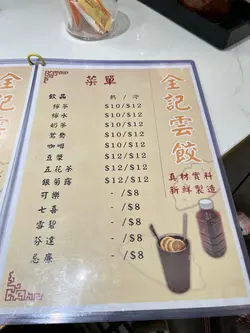 菜單
飲品 熱 / 冷
檸茶 $10/$12
檸水 $10/$12
奶茶 $10/$12
鴛鴦 $10/$12
咖啡 $10/$12
豆漿 $12/$12
五花茶 $12/$12
銀菊露 $12/$12
可樂 - /$8
七喜 - /$8
雪碧 - /$8
芬達 - /$8
忌廉 - /$8
全記雲餃
真材實料
新鮮製造